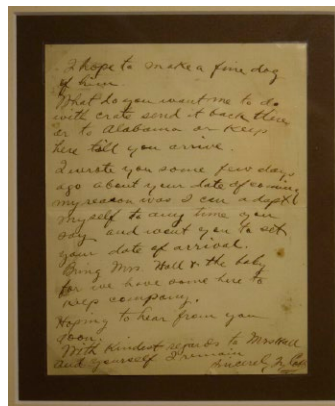 I hope to make a fine dog
of him.
What do you want me to do
with crate send it back there
or to Alabama or keep
here till you arrive.
I wrote you some few days
ago about your date of coming
my reason was I can adapt
myself to any time you
say and want you to set
your date of arrival.
Bring Mrs Hall & the baby
for we have some here to
keep company.
Hoping to hear from you
soon.
With Kindest regards to Mrs Hall
and yourself I remain
Sincerely